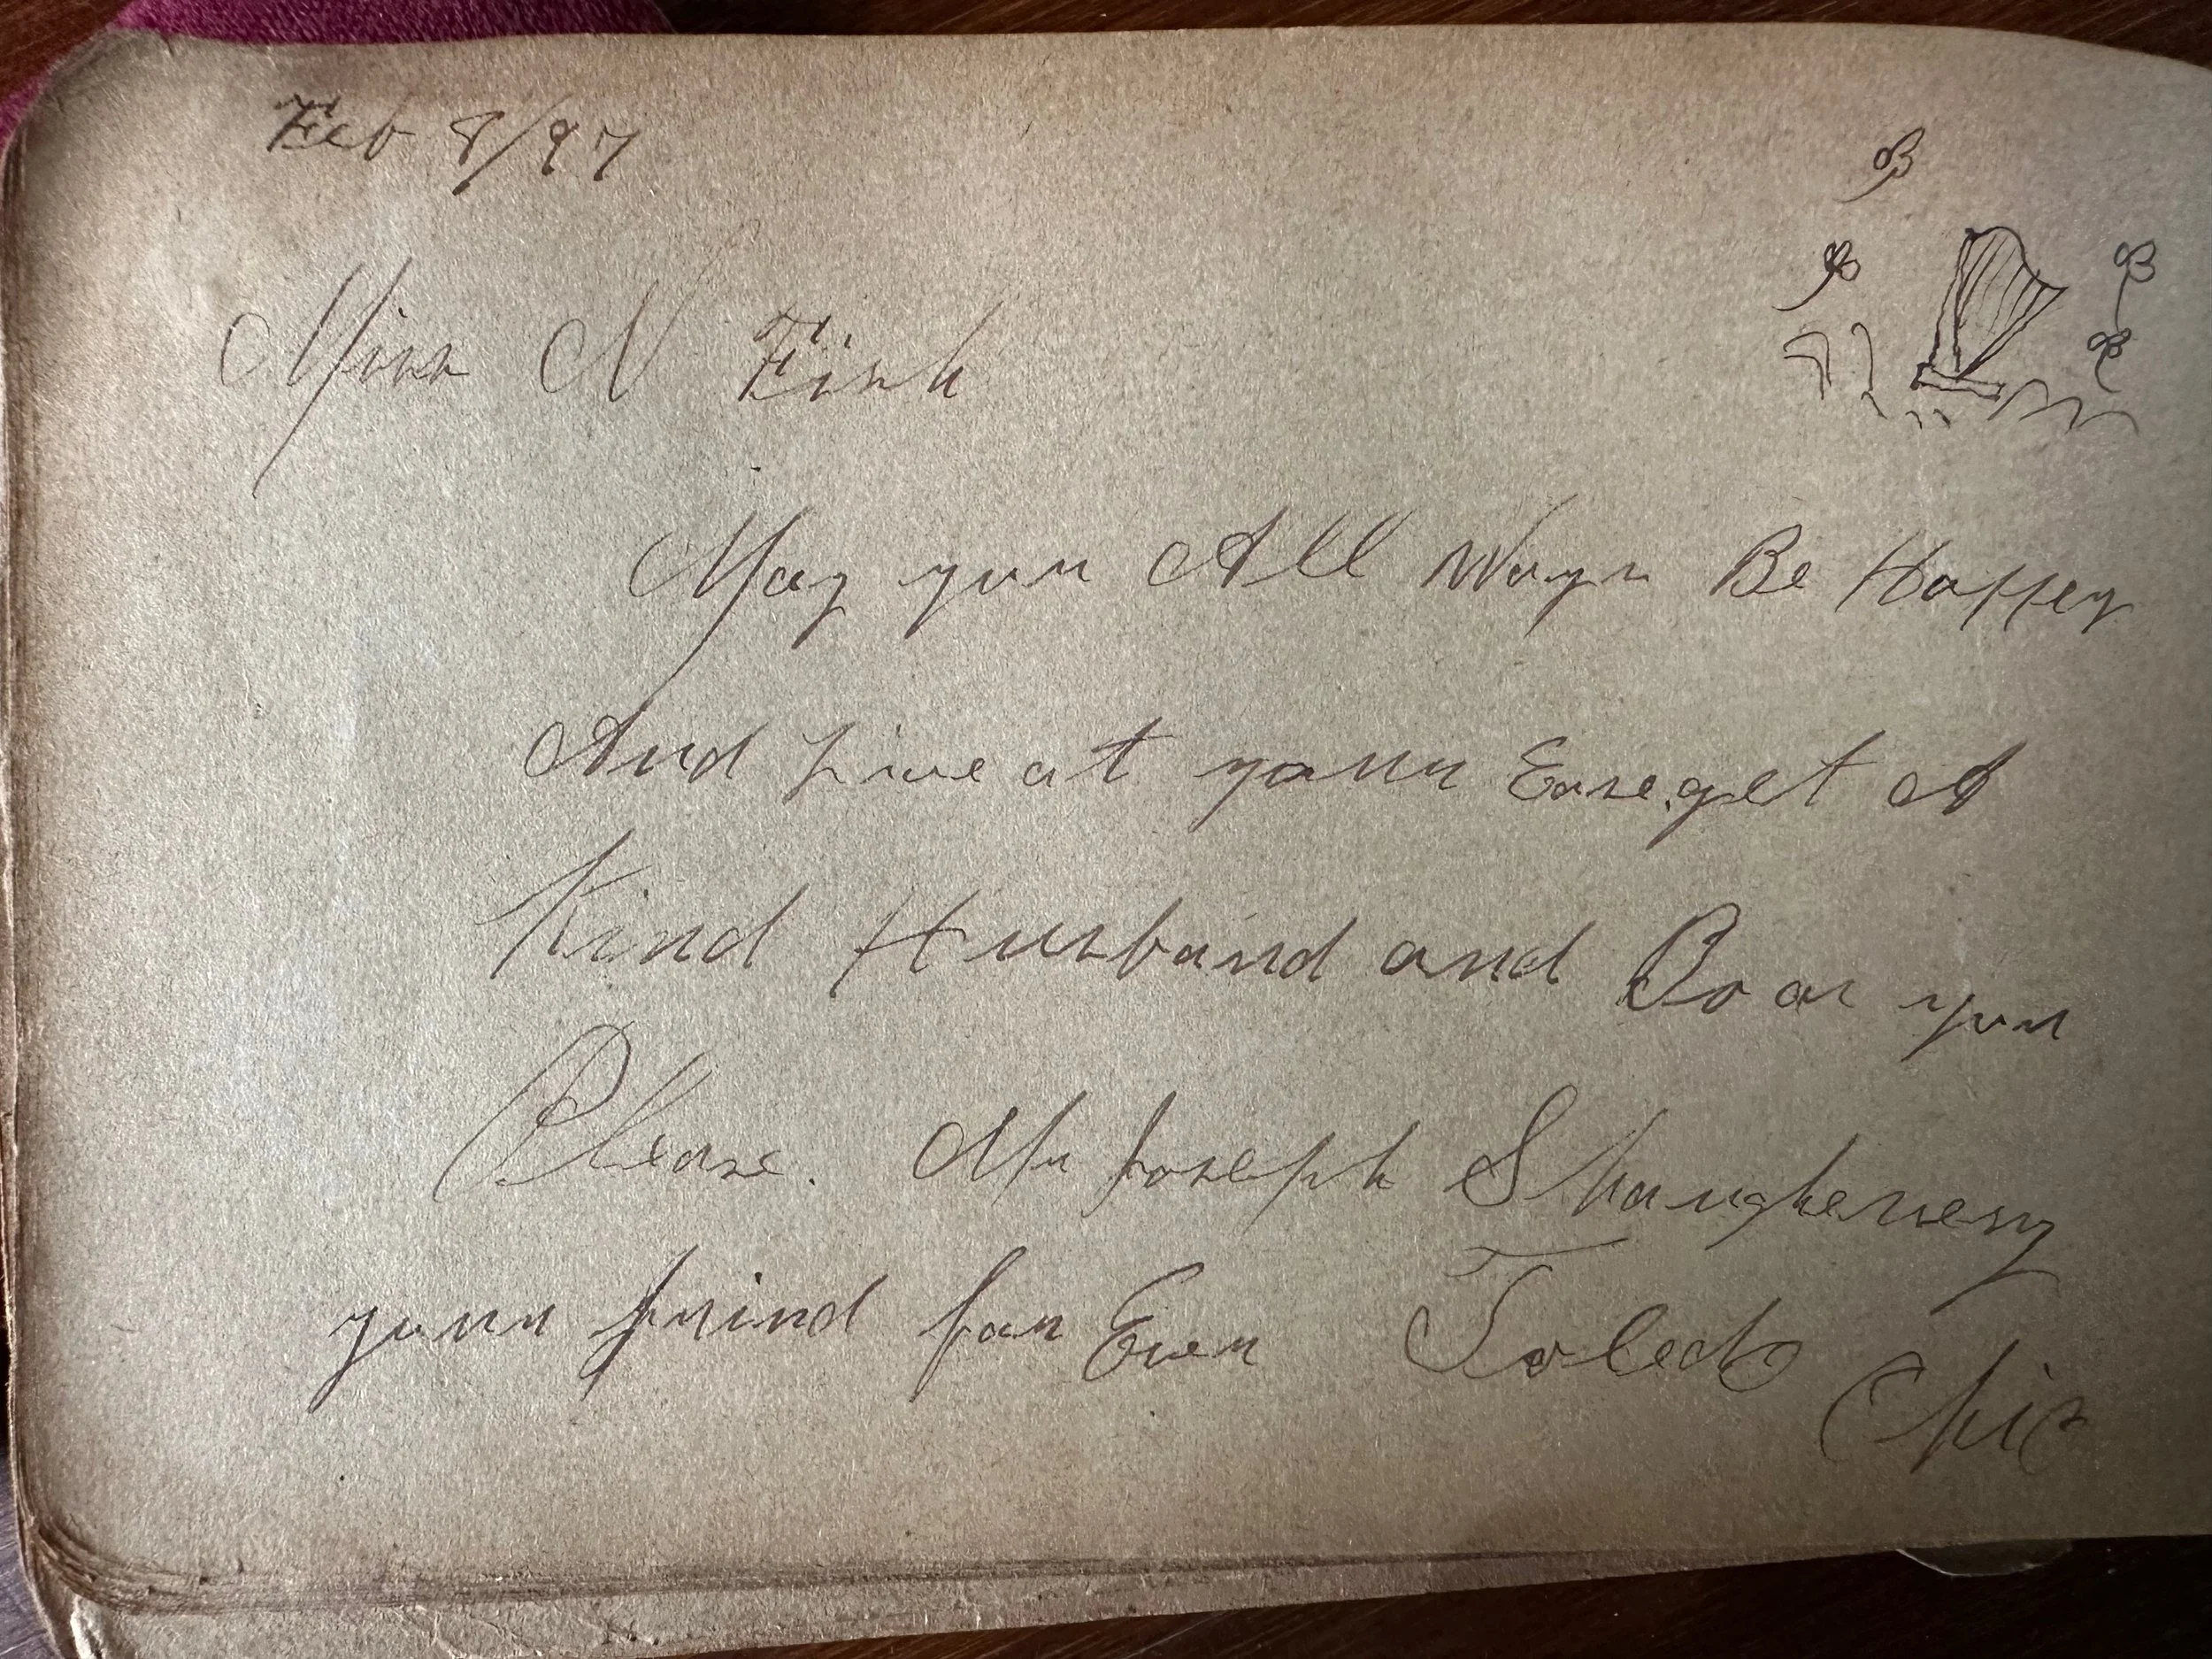 Feb 8/97
Miss N Fish
May you All Ways Be Happey
And Live at your Ease. get A
Kind Husband and Do as you
Please. Mr Joseph Shaughensesy
your frind for Ever Toledo
Ohio